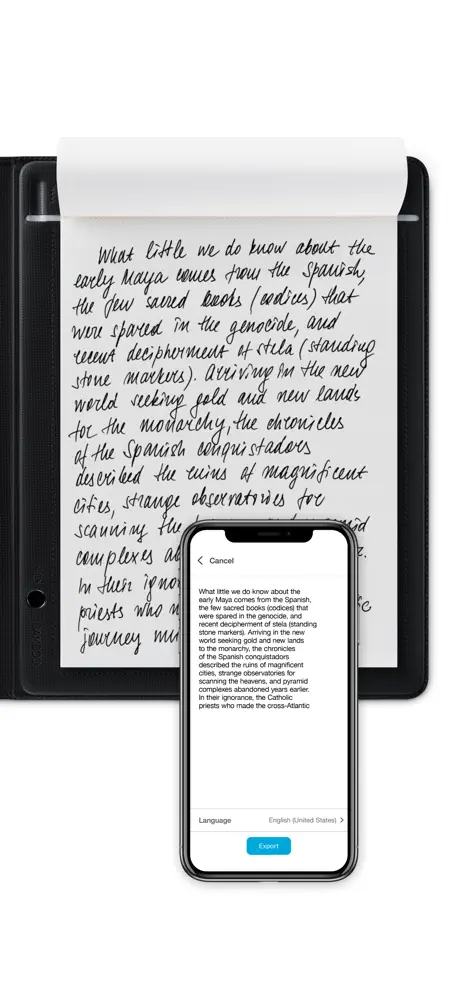 What little we do know about the
early Maya comes from the Spanish,
the few sacred books (codices) that
were spared in the genocide, and
recent decipherment of stela (standing
stone markers). Arriving in the new
world seeking gold and new lands
for the monarchy, the chronicles
of the Spanish conquistadors
described the ruins of magnificent
cities, strange observatories for
scanning the
complexes
In their
priests who
journey
Cancel
What little we do know about the
early Maya comes from the Spanish,
the few sacred books (codices) that
were spared in the genocide, and
recent decipherment of stela (standing
stone markers). Arriving in the new
world seeking gold and new lands
to the monarchy, the chronicles
of the Spanish conquistadors
described the ruins of magnificent
cities, strange observatories for
scanning the heavens, and pyramid
complexes abandoned years earlier.
In their ignorance, the Catholic
priests who made the cross-Atlantic
Language English (United States)
Export